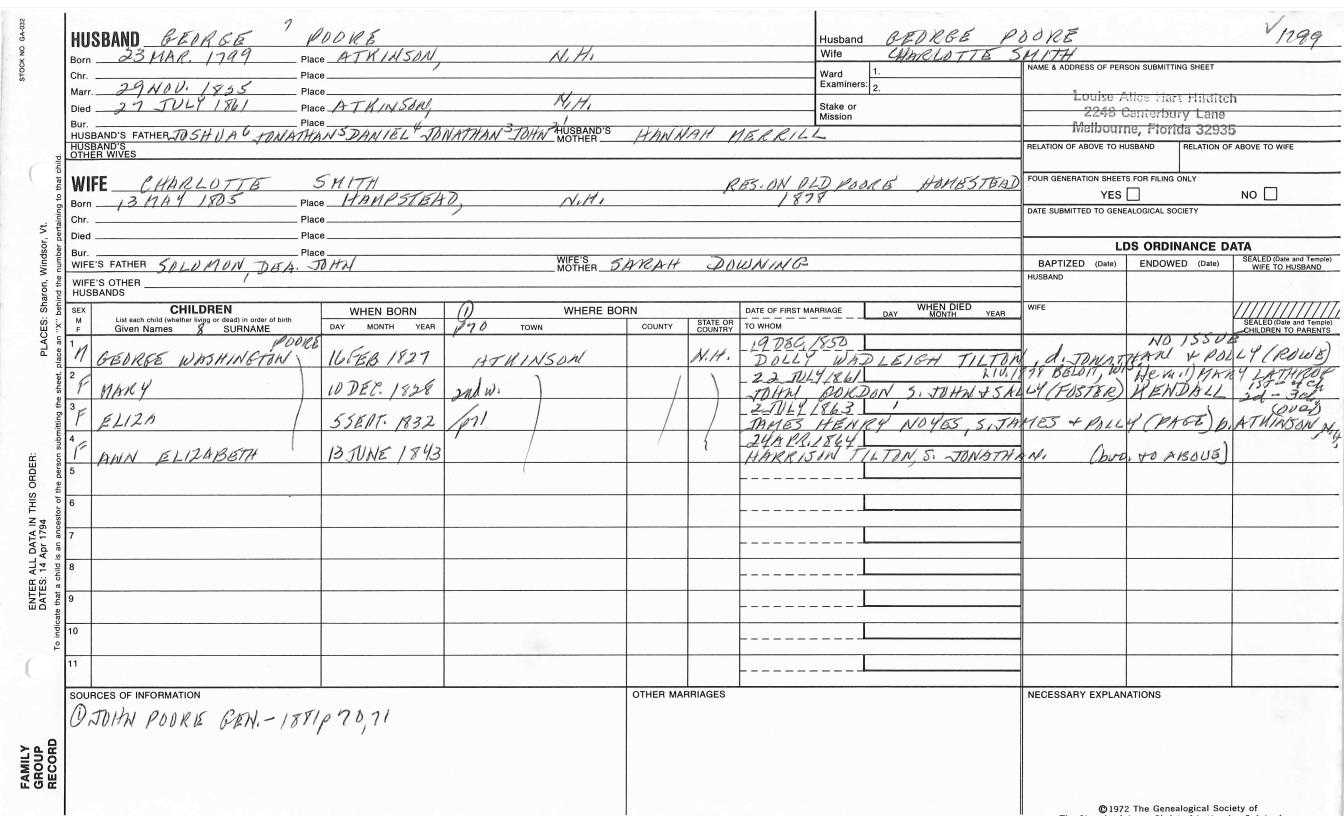 STOCK NO. GA-032
HUSBAND GEORGE 7 POORE
Born 23 MAR. 1799 Place ATKINSON, N.H.
Chr. Place
Marr. 29 NOV. 1825 Place
Died 27 JULY 1861 Place ATKINSON, N.H.
Bur. Place
HUSBAND'S FATHER JOSHUA6 JONATHAN5 DANIEL4 JONATHAN3 JOHN HUSBAND'S MOTHER HANNAH MERRILL
HUSBAND'S OTHER WIVES
Husband GEORGE POORE 1799
Wife CHARLOTTE SMITH
Ward Examiners: 1.
2.
Stake or Mission
NAME & ADDRESS OF PERSON SUBMITTING SHEET
Louise Alice Hart Hilditch
2248 Canterbury Lane
Melbourne, Florida 32935
RELATION OF ABOVE TO HUSBAND RELATION OF ABOVE TO WIFE
FOUR GENERATION SHEETS FOR FILING ONLY
YES NO
DATE SUBMITTED TO GENEALOGICAL SOCIETY
WIFE CHARLOTTE SMITH RES. ON OLD POORE HOMESTEAD
Born 13 MAY 1805 Place HAMPSTEAD, N.H. 1878
Chr. Place
Died Place
Bur. Place
WIFE'S FATHER SOLOMON, DEA. JOHN WIFE'S MOTHER SARAH DOWNING
WIFE'S OTHER HUSBANDS
LDS ORDINANCE DATA
BAPTIZED (Date) ENDOWED (Date) SEALED (Date and Temple) WIFE TO HUSBAND
HUSBAND
WIFE
SEX M F CHILDREN WHEN BORN (1) WHERE BORN DATE OF FIRST MARRIAGE WHEN DIED
List each child (whether living or dead) in order of birth
Given Names 8 SURNAME DAY MONTH YEAR p70 TOWN COUNTY STATE OR COUNTRY TO WHOM DAY MONTH YEAR
SEALED (Date and Temple) CHILDREN TO PARENTS
POORE 19 DEC, 1850 NO ISSUE
1 M GEORGE WASHINGTON 16 FEB 1827 ATKINSON N.H. DOLLY WADLEIGH TILTON, d. JONATHAN & POLLY (ROWE)
22 JULY 1861 LIV. 1878 BELOIT, WIS. He m. 1) MARY LATHROP
2 F MARY 10 DEC. 1828 2nd w. JOHN GORDON S. JOHN & SALLY (FOSTER) KENDALL
1st - 4ch
2d - 3ch
2 JULY 1863 (over)
3 F ELIZA 5 SEPT. 1832 p71 JAMES HENRY NOYES, S. JAMES & POLLY (PAGE) b. ATKINSON N.H.
24 APR. 1864
4 F ANN ELIZABETH 13 JUNE 1843 HARRISON TILTON, S. JONATHAN. (bro. to ABOVE)
5
6
7
8
9
10
11
SOURCES OF INFORMATION OTHER MARRIAGES NECESSARY EXPLANATIONS
(1) JOHN POORE GEN. - 1881 p 70, 71
PLACES: Sharon, Windsor, Vt.
ENTER ALL DATA IN THIS ORDER:
DATES: 14 Apr 1794
To indicate that a child is an ancestor of the person submitting the sheet, place an "X" behind the number pertaining to that child.
FAMILY GROUP RECORD
©1972 The Genealogical Society of